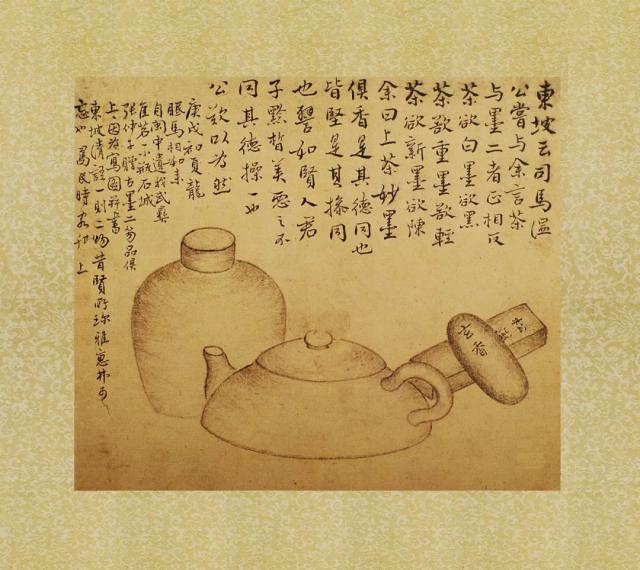 東坡云司馬溫
公嘗与余言茶
与墨二者正相反
茶欲白墨欲黑
茶欲重墨欲輕
茶欲新墨欲陳
余曰上茶妙墨
俱香是其德同也
皆堅是其操同
也譬如賢人君
子黔皙美惡之不
同其德操一也
公歎以為然
庚戌初夏龍
眠馬相如素
自閩中遺我武彝
茗一瓶石城
張仲子贈古墨二笏品俱
上上因為寫圖并書
東坡清語一則二物昔賢所珍雅惠弗可
忘也 民時客邗上
玄香